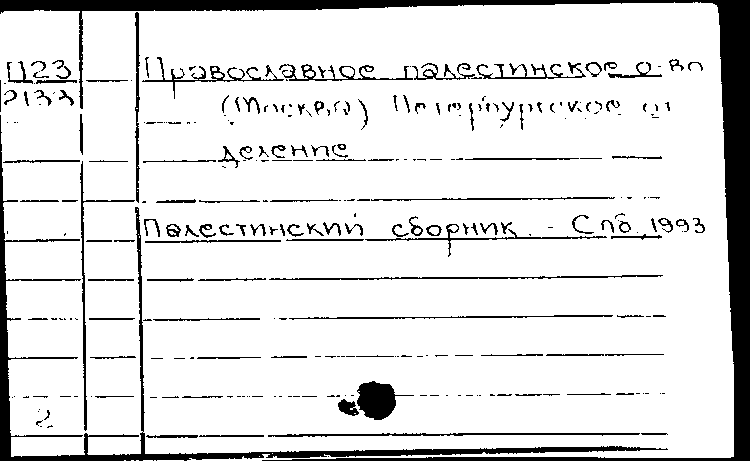 П23 Православное палестинское о-во
2133 (Москва) Петербургское от
деление
Палестинский сборник. - Спб, 1993
2